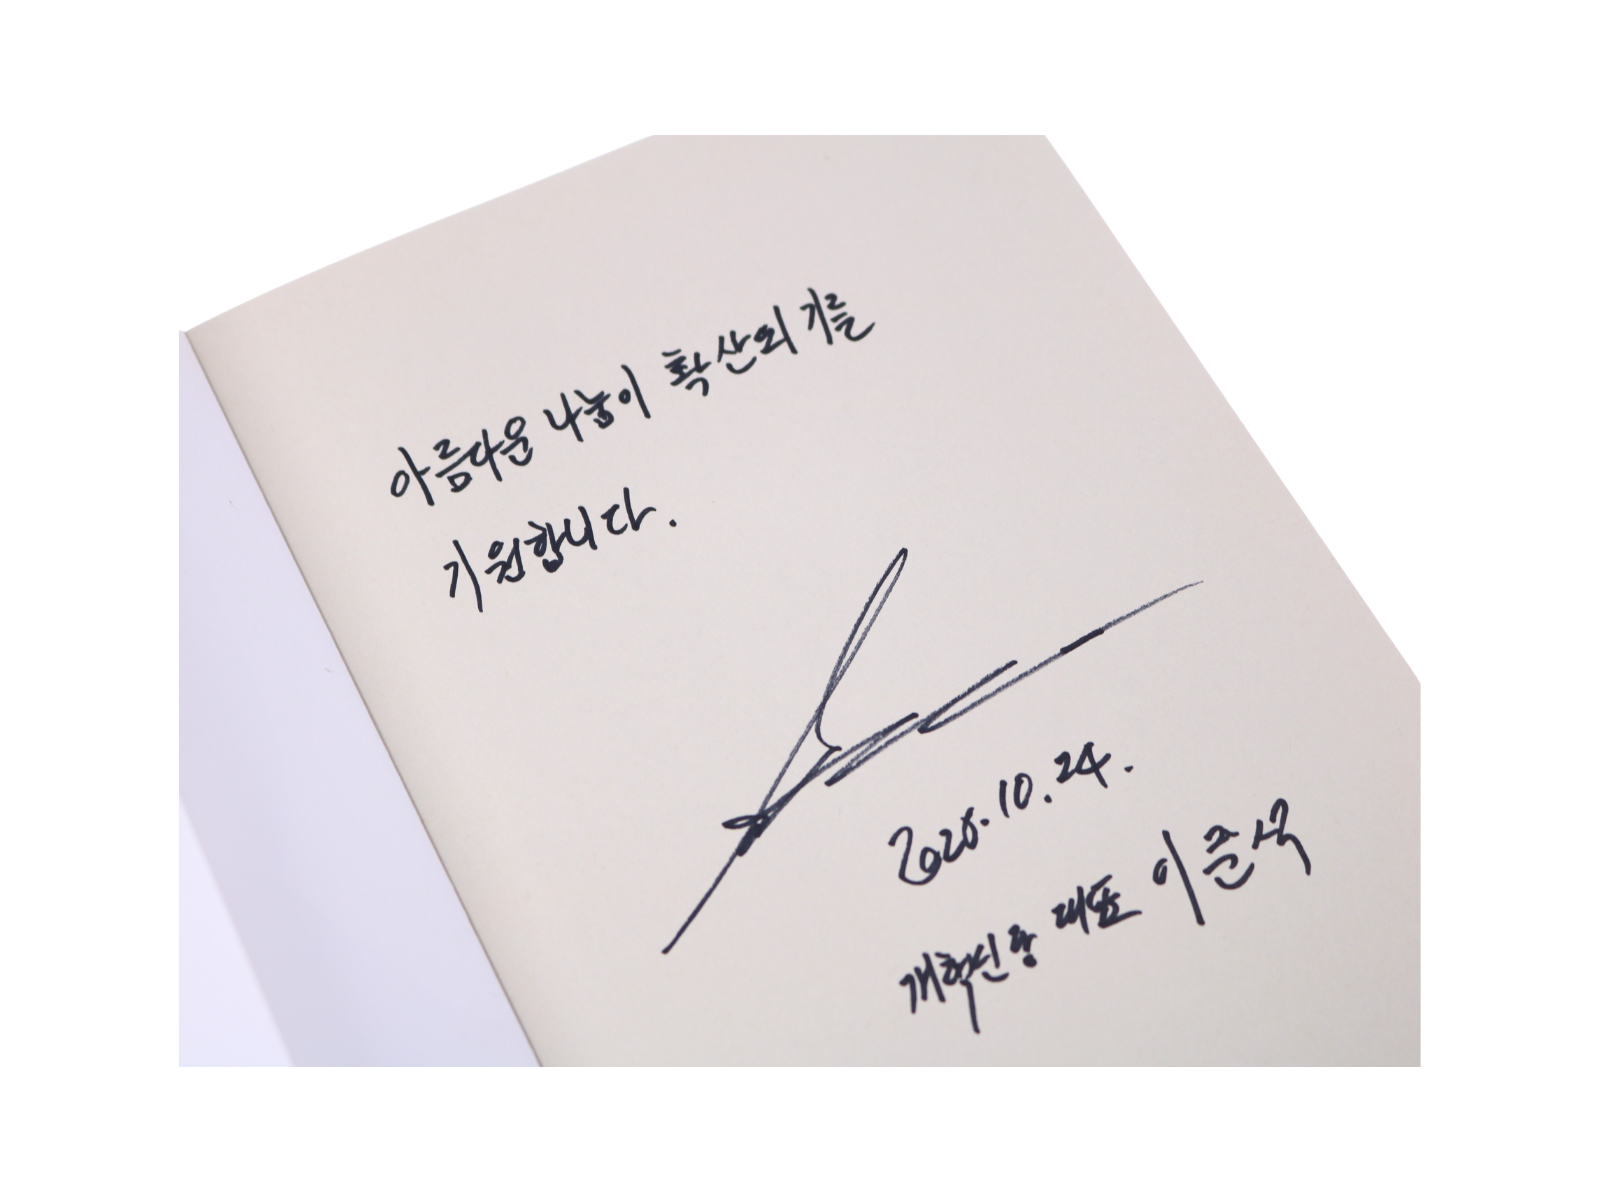 아름다운 나눔이 확산되기를
기원합니다.
2025.10.24.
개혁신당 대표 이준석